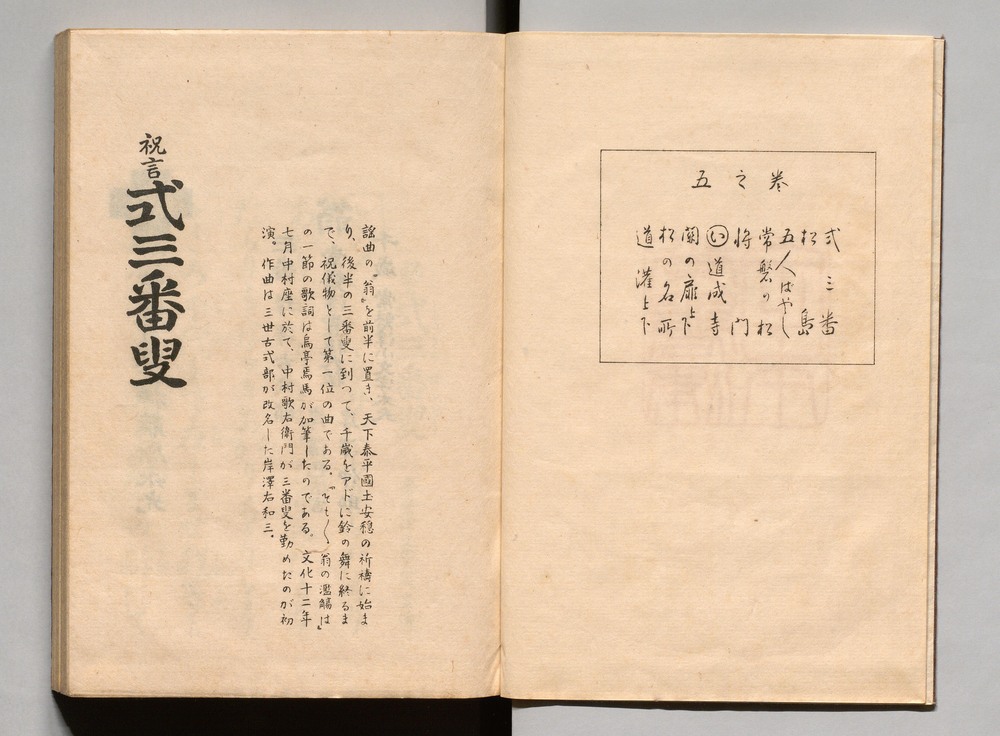 五之巻
式三番
松島
五人ばやし
常磐の松
将門
道成寺
関の扉上下
松の名所
道灌上下
謡曲の〝翁〟を前半に置き、天下泰平國土安穏の祈禱に始ま
り、後半の三番叟に到つて、千歳をアドに鈴の舞に終るま
で、祝儀物として第一位の曲である。〝そも〳〵翁の濫觴は〟
の一節の歌詞は烏亭焉馬が加筆したのである。文化十二年
七月中村座に於て、中村歌右衛門が三番叟を勤めたのが初
演。作曲は三世古式部が改名した岸澤右和三。
祝言 式三番叟